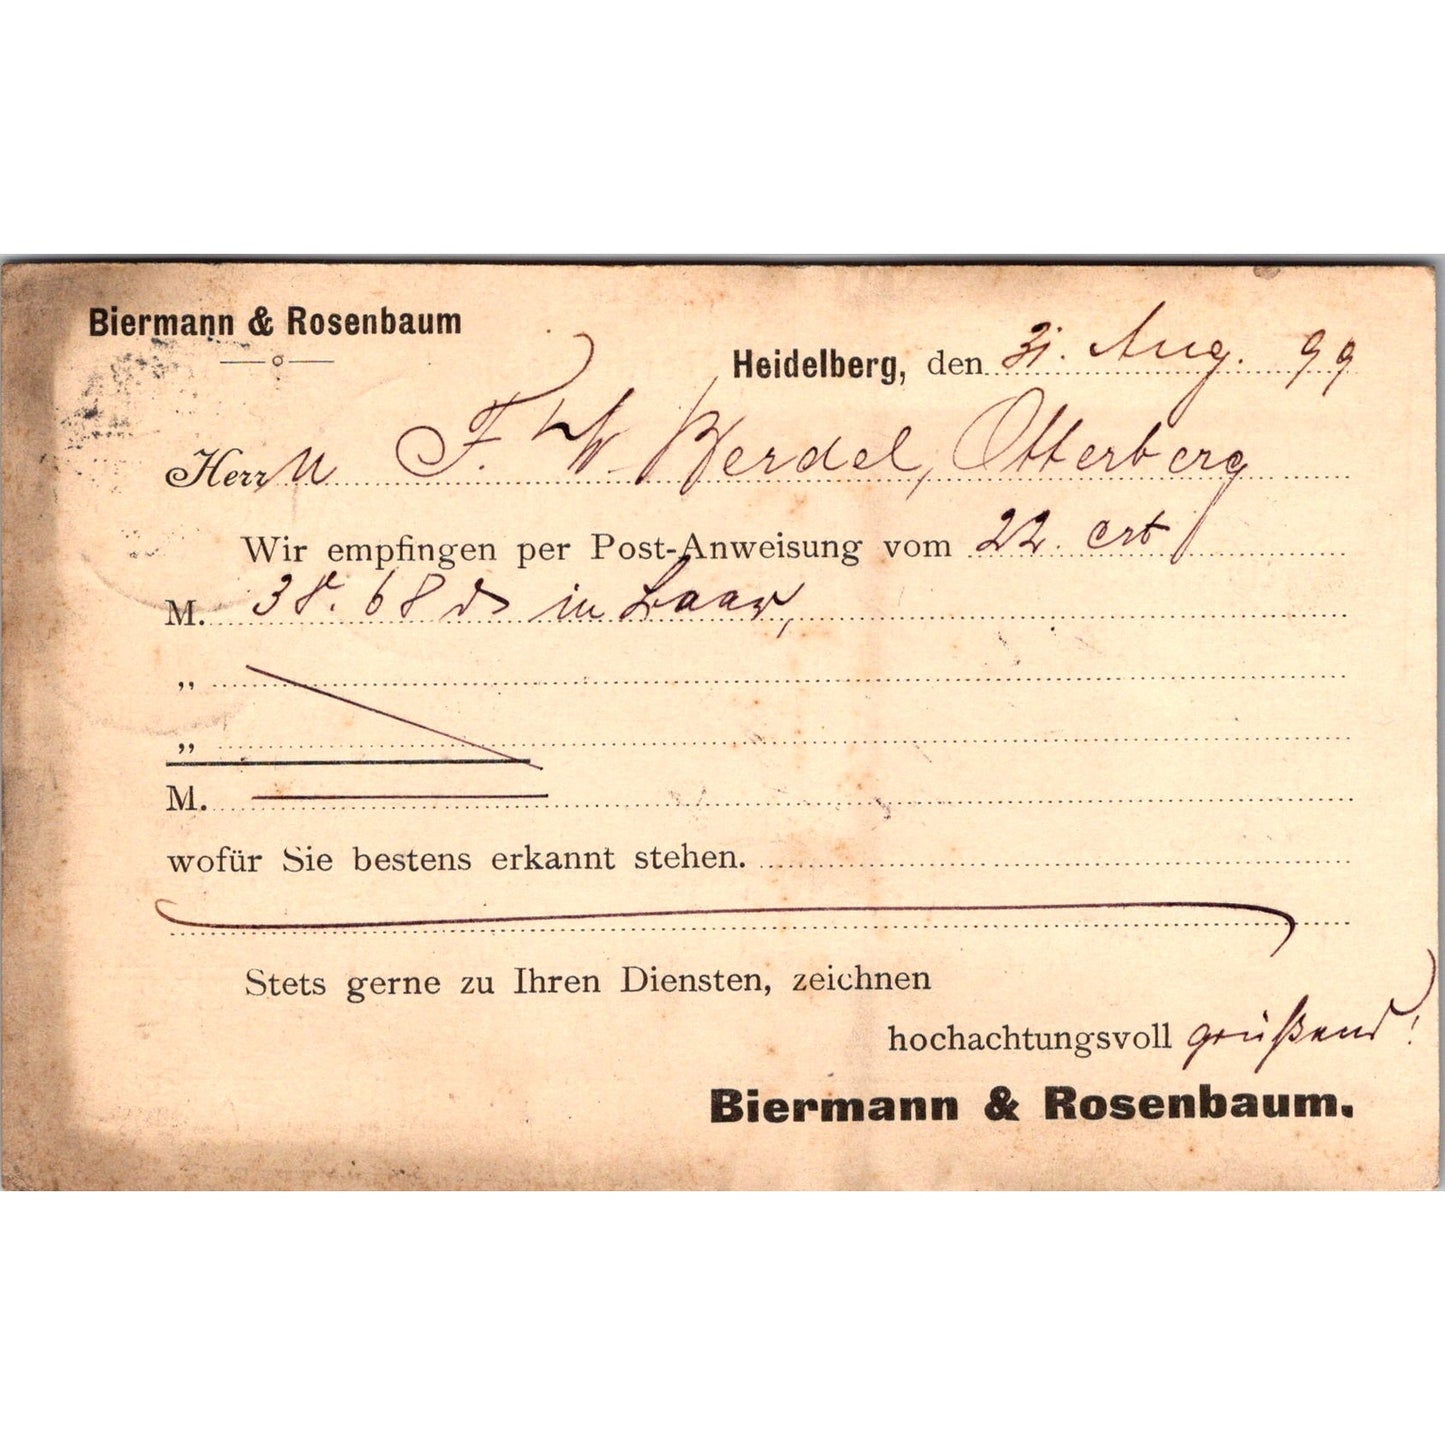 Biermann & Rosenbaum
Heidelberg, den 31. Aug. 99
Herrn F. W. Werdel, Otterberg
Wir empfingen per Post-Anweisung vom 22. crt
M. 38.68 in baar,
„
„
M.
wofür Sie bestens erkannt stehen.
Stets gerne zu Ihren Diensten, zeichnen
hochachtungsvoll grüßend!
Biermann & Rosenbaum.